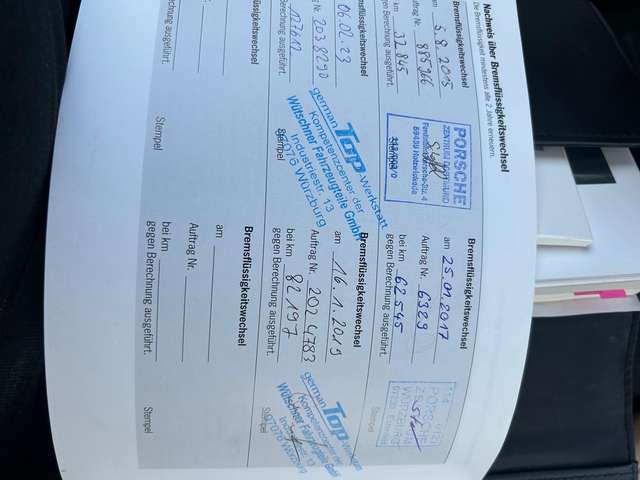 Nachweis über Bremsflüssigkeitswechsel
Die Bremsflüssigkeit mindestens alle 2 Jahre erneuern.
Bremsflüssigkeitswechsel
am 5.8.2015
Auftrag Nr. 885266
bei km 32845
gegen Berechnung ausgeführt.
PORSCHE
ZENTRUM DORTMUND
Stempel
Bremsflüssigkeitswechsel
am 25.01.2017
Auftrag Nr. 6329
bei km 62545
gegen Berechnung ausgeführt.
Stempel
Bremsflüssigkeitswechsel
06.02.23
Nr. 2038290
127612
gegen Berechnung ausgeführt.
german Top Werkstatt
Kompetenzcenter der
Wütschner Fahrzeugteile GmbH
Industriestr. 13
97076 Würzburg
Stempel
Bremsflüssigkeitswechsel
am 16.1.2019
Auftrag Nr. 2024783
bei km 82197
gegen Berechnung ausgeführt.
german Top Werkstatt
Kompetenzcenter der
Wütschner Fahrzeugteile GmbH
97076 Würzburg
Stempel
Berechnung ausgeführt.
Stempel
Bremsflüssigkeitswechsel
am
Auftrag Nr.
bei km
gegen Berechnung ausgeführt.
Stempel